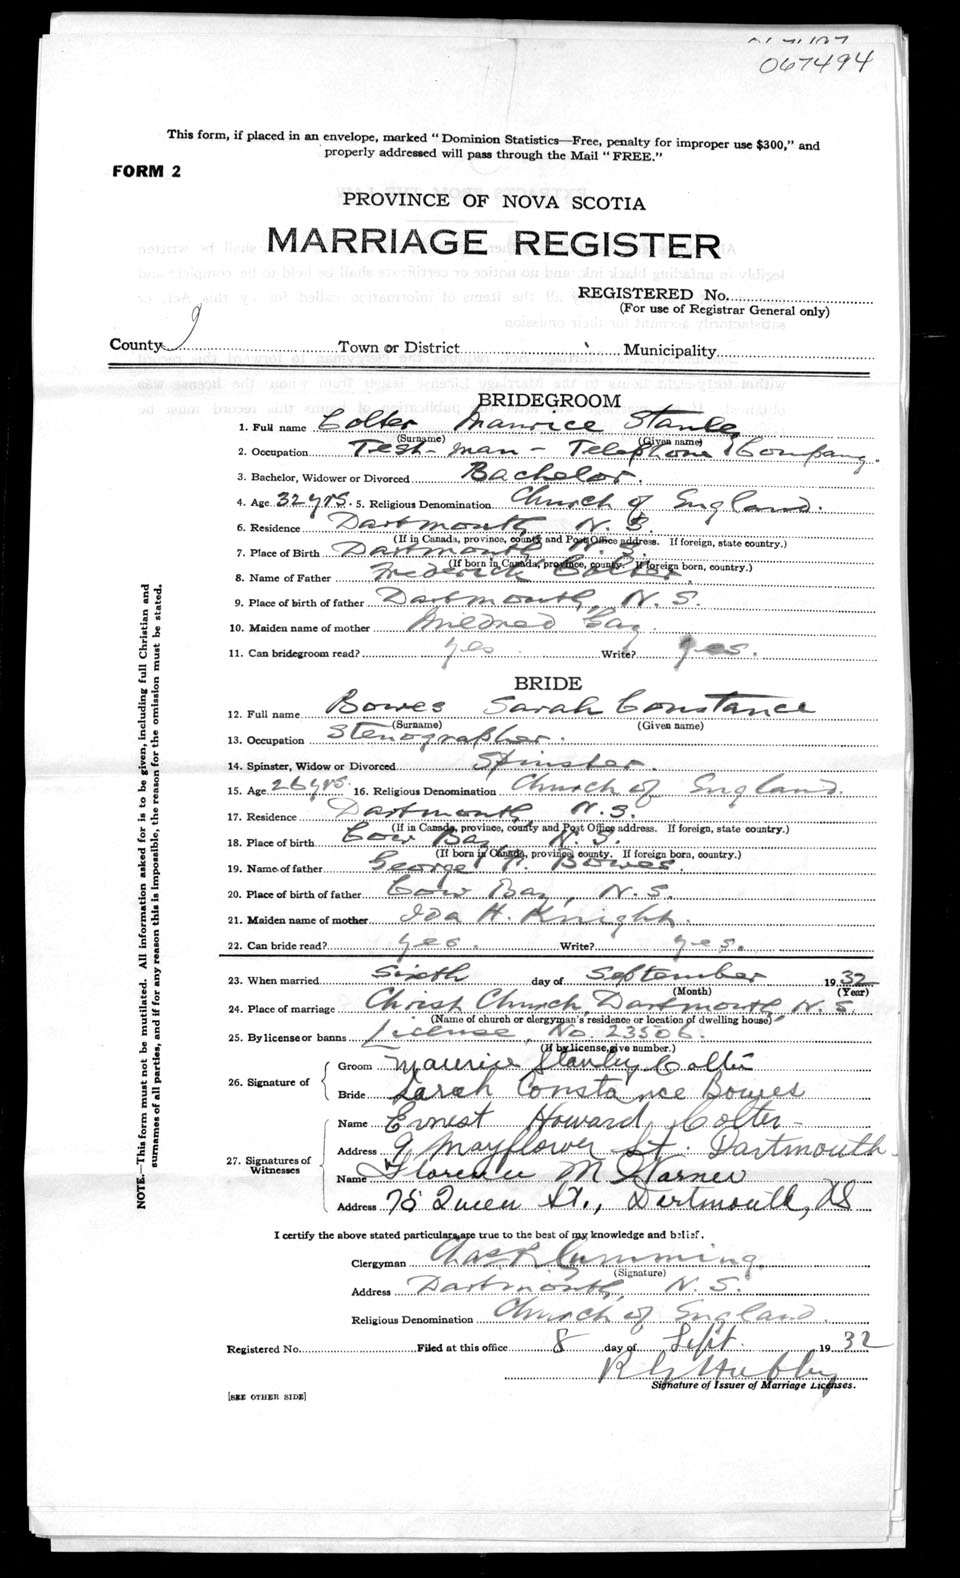 067494
This form, if placed in an envelope, marked "Dominion Statistics—Free, penalty for improper use $300," and
properly addressed will pass through the Mail "FREE."
FORM 2
PROVINCE OF NOVA SCOTIA
MARRIAGE REGISTER
REGISTERED No.
(For use of Registrar General only)
County Town or District Municipality
BRIDEGROOM
1. Full name Colter Maurice Stanley
(Surname) (Given name)
2. Occupation Test-man - Telephone Company.
3. Bachelor, Widower or Divorced Bachelor.
4. Age 32 yrs. 5. Religious Denomination Church of England.
6. Residence Dartmouth N. S.
(If in Canada, province, county and Post Office address. If foreign, state country.)
7. Place of Birth Dartmouth N. S.
(If born in Canada, province, county. If foreign born, country.)
8. Name of Father Frederick Colter
9. Place of birth of father Dartmouth, N. S.
10. Maiden name of mother Mildred Gay.
11. Can bridegroom read? yes Write? yes.
BRIDE
12. Full name Bowes Sarah Constance
(Surname) (Given name)
13. Occupation Stenographer.
14. Spinster, Widow or Divorced Spinster.
15. Age 26 yrs. 16. Religious Denomination Church of England.
17. Residence Dartmouth N. S.
(If in Canada, province, county and Post Office address. If foreign, state country.)
18. Place of birth Cow Bay N. S.
(If born in Canada, province, county. If foreign born, country.)
19. Name of father George Bowes.
20. Place of birth of father Cow Bay, N. S.
21. Maiden name of mother Ida H. Knight.
22. Can bride read? yes. Write? yes.
23. When married Sixth day of September 1932
(Month) (Year)
24. Place of marriage Christ Church, Dartmouth, N. S.
(Name of church or clergyman's residence or location of dwelling house)
25. By license or banns License, No. 23506.
(If by license, give number.)
26. Signature of Groom Maurice Stanley Colter
Bride Sarah Constance Bowes
27. Signatures of Witnesses
Name Ernest Howard Colter
Address 9 Mayflower St. Dartmouth
Name Florence M
Address 75 Queen St., Dartmouth, NS
I certify the above stated particulars are true to the best of my knowledge and belief.
Clergyman Chas R Cumming
(Signature)
Address Dartmouth, N. S.
Religious Denomination Church of England.
Registered No. Filed at this office 8 day of Sept. 1932
Signature of Issuer of Marriage Licenses.
[SEE OTHER SIDE]
NOTE.—This form must not be mutilated. All information asked for is to be given, including full Christian and
surnames of all parties, and if for any reason this is impossible, the reason for the omission must be stated.